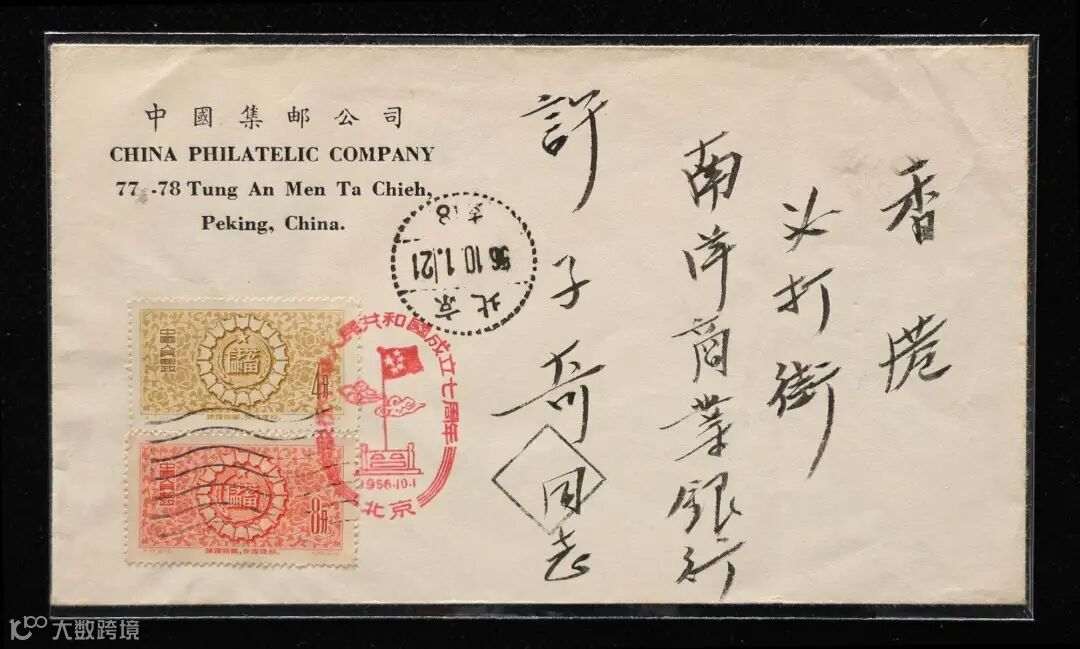 中國集邮公司
CHINA PHILATELIC COMPANY
77 -78 Tung An Men Ta Chieh,
Peking, China.
香港
必打街
南洋商業銀行
許子奇同志
北京
56.10.1.21
支18
人民共和國成立七周年
1956·10·1
北京
4分
8分
大数跨境